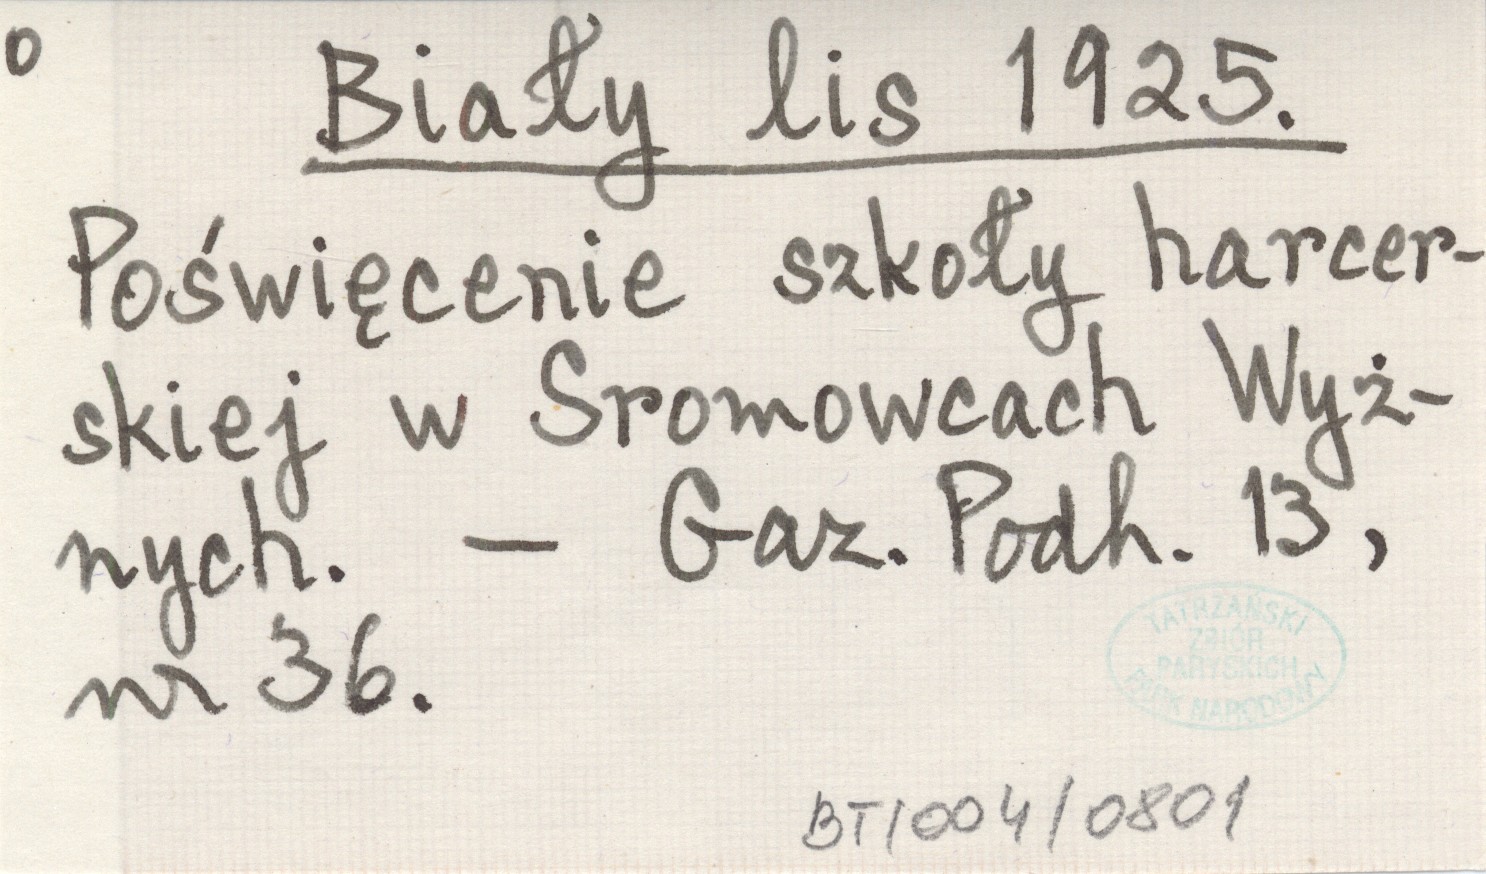 o
Biały lis 1925.
Poświęcenie szkoły harcer-
skiej w Sromowcach Wyż-
nych. — Gaz. Podh. 13,
nr 36.
TATRZAŃSKI
ZBIÓR
PARYSKICH
PARK NARODOWY
BT/004/0801